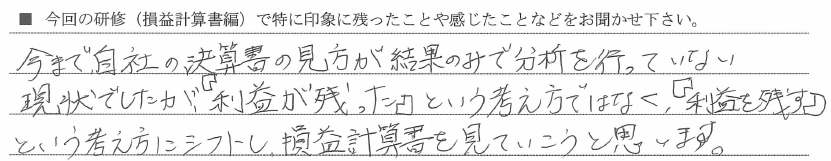 ■ 今回の研修（損益計算書編）で特に印象に残ったことや感じたことなどをお聞かせ下さい。
今まで自社の決算書の見方が結果のみで分析を行っていない
現状でしたが『利益が残った』という考え方ではなく、『利益を残す』
という考え方にシフトし、損益計算書を見ていこうと思います。